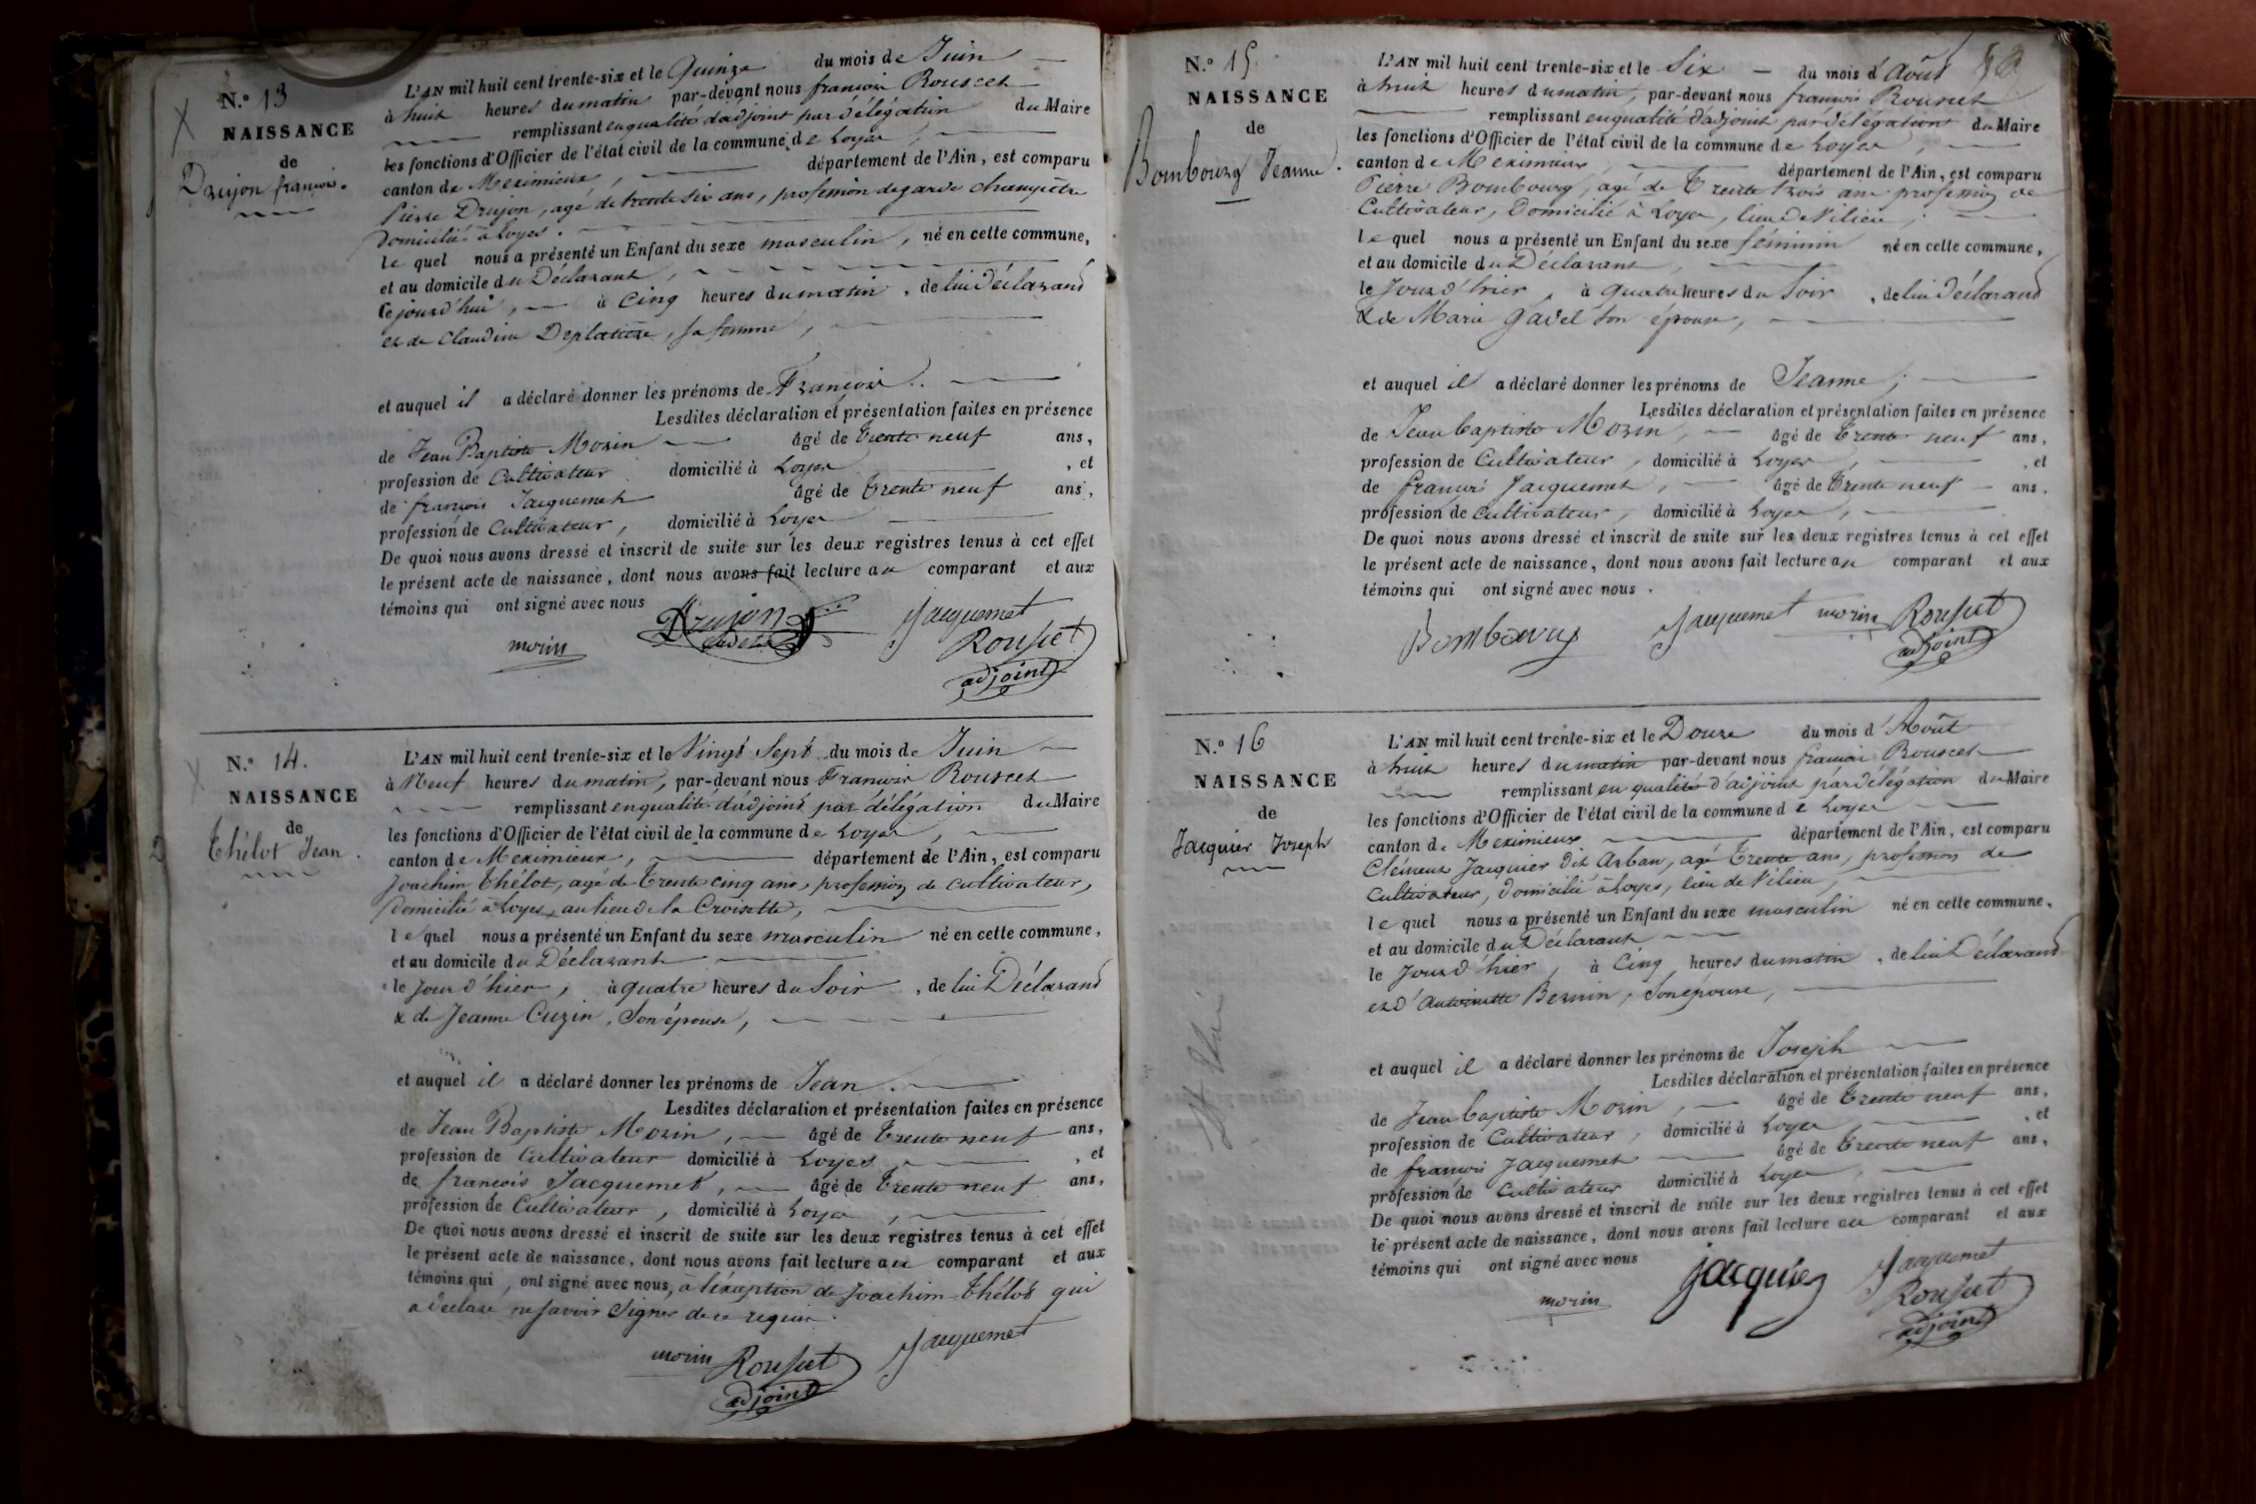 N.° 13
NAISSANCE
de
Drujon françois.
L'AN mil huit cent trente-six et le Quinze du mois de Juin
à huit heures du matin par-devant nous françois Rousset
remplissant en qualité d'adjoint par délégation du Maire
les fonctions d'Officier de l'état civil de la commune de Loyes,
canton de Meximieux, département de l'Ain, est comparu
Pierre Drujon, agé de trente six ans, profession de garde champêtre
domicilié à Loyes.
le quel nous a présenté un Enfant du sexe masculin, né en cette commune,
et au domicile du Déclarant,
ce jourd'hui, à Cinq heures du matin, de lui déclarand
et de Claudine Deplatière, sa femme,
et auquel il a déclaré donner les prénoms de François.
Lesdites déclaration et présentation faites en présence
de Jean Baptiste Morin âgé de trente neuf ans,
profession de Cultivateur domicilié à Loyes, et
de françois Jacquemet âgé de trente neuf ans,
profession de Cultivateur, domicilié à Loyes
De quoi nous avons dressé et inscrit de suite sur les deux registres tenus à cet effet
le présent acte de naissance, dont nous avons fait lecture au comparant et aux
témoins qui ont signé avec nous
morin Drujon Jacquemet
Rousset
adjoint
N.° 14.
NAISSANCE
de
Thélot Jean.
L'AN mil huit cent trente-six et le Vingt Sept du mois de Juin
à Neuf heures du matin, par-devant nous François Rousset
remplissant en qualité d'adjoint par délégation du Maire
les fonctions d'Officier de l'état civil de la commune de Loyes,
canton de Meximieux, département de l'Ain, est comparu
Joachim Thélot, agé de Trente cinq ans, profession de cultivateur,
domicilié à Loyes, au lieu de la Croisette,
le quel nous a présenté un Enfant du sexe masculin né en cette commune,
et au domicile du Déclarant
le jour d'hier, à quatre heures du Soir, de lui Déclarand
& de Jeanne Cuzin, Son épouse,
et auquel il a déclaré donner les prénoms de Jean.
Lesdites déclaration et présentation faites en présence
de Jean Baptiste Morin, âgé de trente neuf ans,
profession de Cultivateur domicilié à Loyes, et
de francois Jacquemet, âgé de trente neuf ans,
profession de Cultivateur, domicilié à Loyes,
De quoi nous avons dressé et inscrit de suite sur les deux registres tenus à cet effet
le présent acte de naissance, dont nous avons fait lecture au comparant et aux
témoins qui, ont signé avec nous, à l'exception de Joachim Thélot qui
a déclaré ne savoir Signer de ce requis.
morin Rousset Jacquemet
adjoint
N.° 15.
NAISSANCE
de
Bombourg Jeanne.
L'AN mil huit cent trente-six et le Six du mois d'Août
à huit heures du matin, par-devant nous françois Rousset
remplissant en qualité d'adjoint par délégation du Maire
les fonctions d'Officier de l'état civil de la commune de Loyes,
canton de Meximieux, département de l'Ain, est comparu
Pierre Bombourg, agé de Trente trois ans profession de
Cultivateur, Domicilié à Loyes, lieu de Vilieu,
le quel nous a présenté un Enfant du sexe féminin né en cette commune,
et au domicile du Déclarant,
le Jour d'hier, à quatre heures du Soir, de lui déclarand
& de Marie Gavel Son épouse,
et auquel il a déclaré donner les prénoms de Jeanne;
Lesdites déclaration et présentation faites en présence
de Jean baptiste Morin, âgé de trente neuf ans,
profession de Cultivateur, domicilié à Loyes, et
de françois Jacquemet, âgé de trente neuf ans,
profession de cultivateur, domicilié à Loyes,
De quoi nous avons dressé et inscrit de suite sur les deux registres tenus à cet effet
le présent acte de naissance, dont nous avons fait lecture au comparant et aux
témoins qui ont signé avec nous.
Bombourg Jacquemet morin Rousset
adjoint
N.° 16
NAISSANCE
de
Jacquier Joseph
L'AN mil huit cent trente-six et le Douze du mois d'Août
à huit heures du matin par-devant nous françois Rousset
remplissant en qualité d'adjoint par délégation du Maire
les fonctions d'Officier de l'état civil de la commune de Loyes
canton de Meximieux département de l'Ain, est comparu
Clément Jacquier dit Arban, agé trente ans, profession de
Cultivateur, domicilié à Loyes, lieu de Vilieu,
le quel nous a présenté un Enfant du sexe masculin né en cette commune,
et au domicile du Déclarant
le Jour d'hier, à Cinq heures du matin, de lui Déclarand
et d'Antoinette Bernin, Son épouse,
et auquel il a déclaré donner les prénoms de Joseph
Lesdites déclaration et présentation faites en présence
de Jean baptiste Morin, âgé de trente neuf ans,
profession de Cultivateur, domicilié à Loyes, et
de françois Jacquemet âgé de trente neuf ans,
profession de Cultivateur domicilié à Loyes,
De quoi nous avons dressé et inscrit de suite sur les deux registres tenus à cet effet
le présent acte de naissance, dont nous avons fait lecture au comparant et aux
témoins qui ont signé avec nous
morin jacquier Jacquemet
Rousset
adjoint